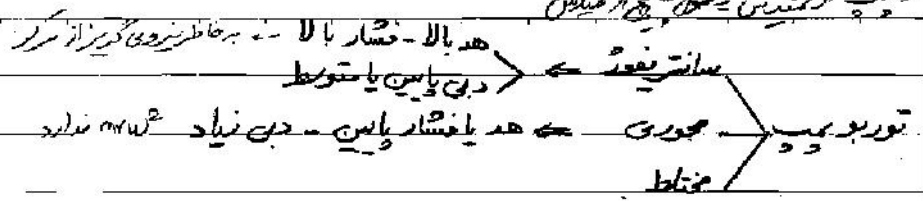 سانتریفوژ ← هد بالا - فشار بالا ∴ به خاطر نیروی گریز از مرکز
دبی پایین یا متوسط
توربوپمپ محوری ← هد یا فشار پایین - دبی زیاد mrω² ندارد
مختلط